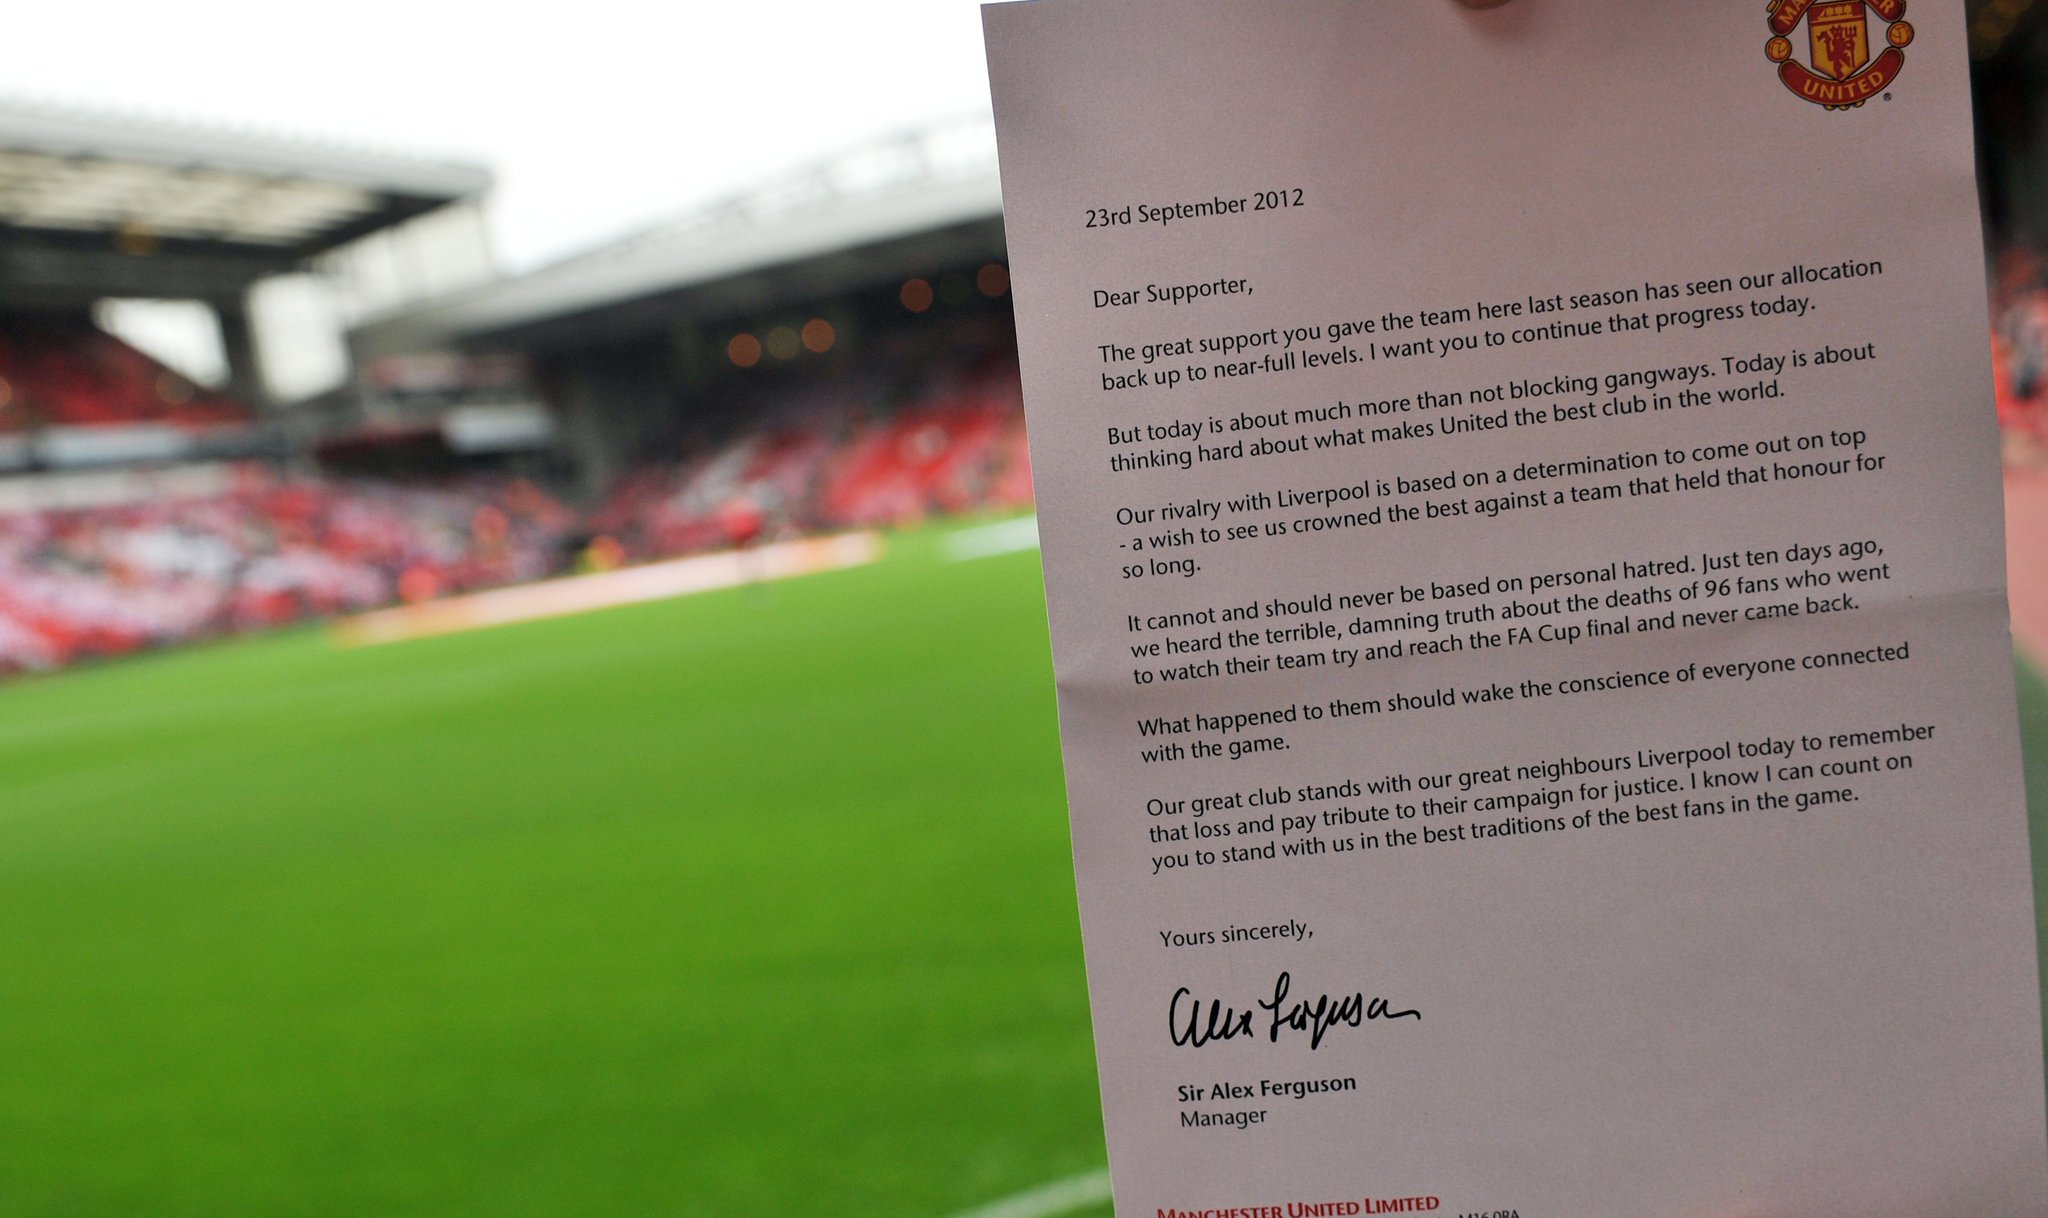 UNITED
23rd September 2012
Dear Supporter,
The great support you gave the team here last season has seen our allocation
back up to near-full levels. I want you to continue that progress today.
But today is about much more than not blocking gangways. Today is about
thinking hard about what makes United the best club in the world.
Our rivalry with Liverpool is based on a determination to come out on top
- a wish to see us crowned the best against a team that held that honour for
so long.
It cannot and should never be based on personal hatred. Just ten days ago,
we heard the terrible, damning truth about the deaths of 96 fans who went
to watch their team try and reach the FA Cup final and never came back.
What happened to them should wake the conscience of everyone connected
with the game.
Our great club stands with our great neighbours Liverpool today to remember
that loss and pay tribute to their campaign for justice. I know I can count on
you to stand with us in the best traditions of the best fans in the game.
Yours sincerely,
Alex Ferguson
Sir Alex Ferguson
Manager
MANCHESTER UNITED LIMITED
M16 0RA